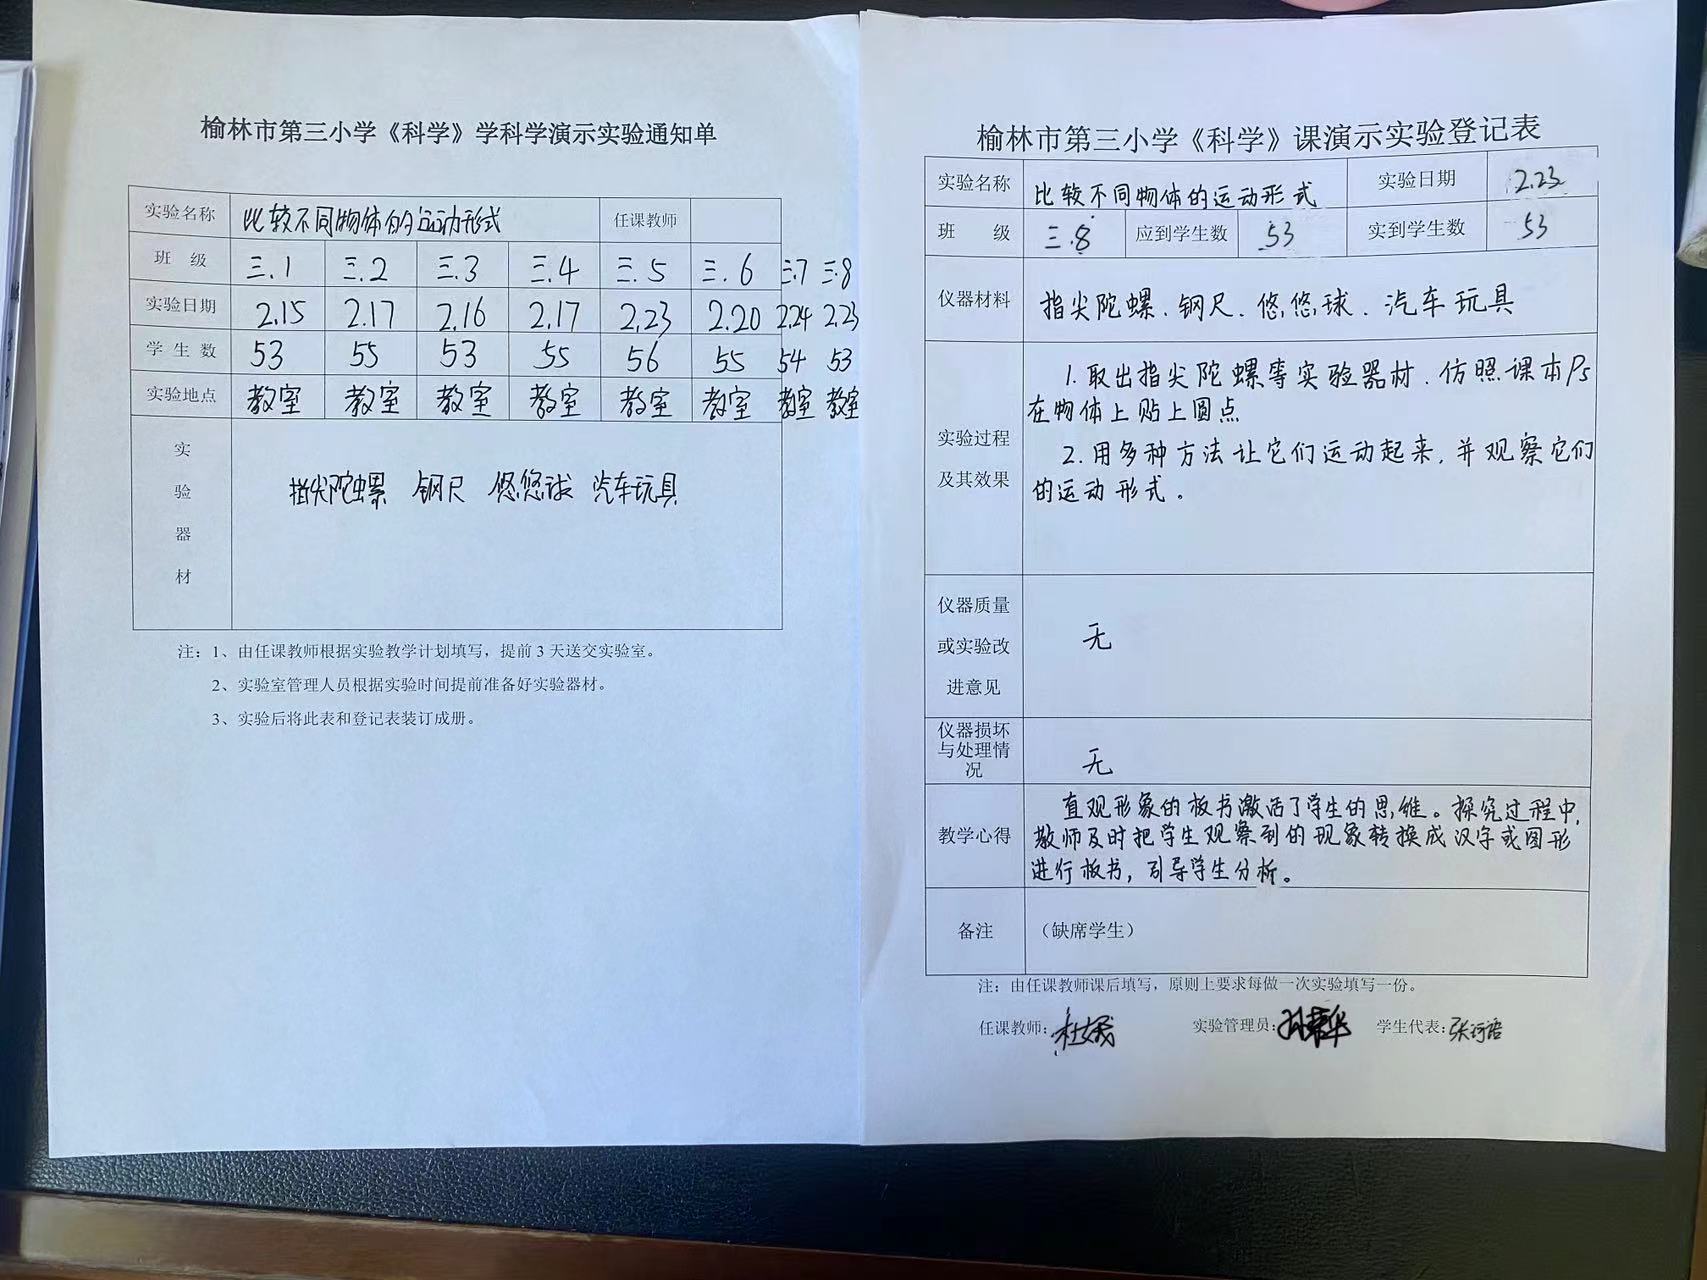 榆林市第三小学《科学》学科学演示实验通知单
实验名称 比较不同物体的运动形式 任课教师
班 级 三.1 三.2 三.3 三.4 三.5 三.6 三.7 三.8
实验日期 2.15 2.17 2.16 2.17 2.23 2.20 2.24 2.23
学 生 数 53 55 53 55 56 55 54 53
实验地点 教室 教室 教室 教室 教室 教室 教室 教室
实
验
器
材
指尖陀螺 钢尺 悠悠球 汽车玩具
注：1、由任课教师根据实验教学计划填写，提前 3 天送交实验室。
2、实验室管理人员根据实验时间提前准备好实验器材。
3、实验后将此表和登记表装订成册。
榆林市第三小学《科学》课演示实验登记表
实验名称 比较不同物体的运动形式 实验日期 2.23
班 级 三.8 应到学生数 53 实到学生数 53
仪器材料 指尖陀螺、钢尺、悠悠球、汽车玩具
实验过程
及其效果
1. 取出指尖陀螺等实验器材、仿照课本P5
在物体上贴上圆点
2. 用多种方法让它们运动起来，并观察它们
的运动形式。
仪器质量
或实验改
进意见
无
仪器损坏
与处理情
况
无
教学心得
直观形象的板书激活了学生的思维。探究过程中，
教师及时把学生观察到的现象转换成汉字或图形
进行板书，引导学生分析。
备注 （缺席学生）
注：由任课教师课后填写，原则上要求每做一次实验填写一份。
任课教师： 实验管理员： 学生代表：